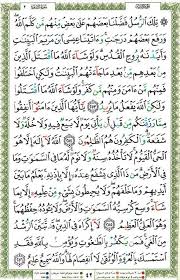 ۞ تِلْكَ ٱلرُّسُلُ فَضَّلْنَا بَعْضَهُمْ عَلَىٰ بَعْضٍ مِّنْهُم مَّن كَلَّمَ ٱللَّهُ
وَرَفَعَ بَعْضَهُمْ دَرَجَٰتٍ وَءَاتَيْنَا عِيسَى ٱبْنَ مَرْيَمَ ٱلْبَيِّنَٰتِ
وَأَيَّدْنَٰهُ بِرُوحِ ٱلْقُدُسِ وَلَوْ شَآءَ ٱللَّهُ مَا ٱقْتَتَلَ ٱلَّذِينَ
مِنۢ بَعْدِهِم مِّنۢ بَعْدِ مَا جَآءَتْهُمُ ٱلْبَيِّنَٰتُ وَلَٰكِنِ ٱخْتَلَفُوا۟
فَمِنْهُم مَّنْ ءَامَنَ وَمِنْهُم مَّن كَفَرَ وَلَوْ شَآءَ ٱللَّهُ مَا ٱقْتَتَلُوا۟
وَلَٰكِنَّ ٱللَّهَ يَفْعَلُ مَا يُرِيدُ ٢٥٣ يَٰٓأَيُّهَا ٱلَّذِينَ ءَامَنُوٓا۟ أَنفِقُوا۟
مِمَّا رَزَقْنَٰكُم مِّن قَبْلِ أَن يَأْتِىَ يَوْمٌ لَّا بَيْعٌ فِيهِ وَلَا خُلَّةٌ وَلَا
شَفَٰعَةٌ وَٱلْكَٰفِرُونَ هُمُ ٱلظَّٰلِمُونَ ٢٥٤ ٱللَّهُ لَآ إِلَٰهَ إِلَّا هُوَ
ٱلْحَىُّ ٱلْقَيُّومُ لَا تَأْخُذُهُۥ سِنَةٌ وَلَا نَوْمٌ لَّهُۥ مَا فِى ٱلسَّمَٰوَٰتِ وَمَا
فِى ٱلْأَرْضِ مَن ذَا ٱلَّذِى يَشْفَعُ عِندَهُۥٓ إِلَّا بِإِذْنِهِۦ يَعْلَمُ مَا بَيْنَ
أَيْدِيهِمْ وَمَا خَلْفَهُمْ وَلَا يُحِيطُونَ بِشَىْءٍ مِّنْ عِلْمِهِۦٓ إِلَّا بِمَا
شَآءَ وَسِعَ كُرْسِيُّهُ ٱلسَّمَٰوَٰتِ وَٱلْأَرْضَ وَلَا يَـُٔودُهُۥ حِفْظُهُمَا
وَهُوَ ٱلْعَلِىُّ ٱلْعَظِيمُ ٢٥٥ لَآ إِكْرَاهَ فِى ٱلدِّينِ قَد تَّبَيَّنَ
ٱلرُّشْدُ مِنَ ٱلْغَىِّ فَمَن يَكْفُرْ بِٱلطَّٰغُوتِ وَيُؤْمِنۢ بِٱللَّهِ فَقَدِ
ٱسْتَمْسَكَ بِٱلْعُرْوَةِ ٱلْوُثْقَىٰ لَا ٱنفِصَامَ لَهَا وَٱللَّهُ سَمِيعٌ عَلِيمٌ ٢٥٦
٤٢